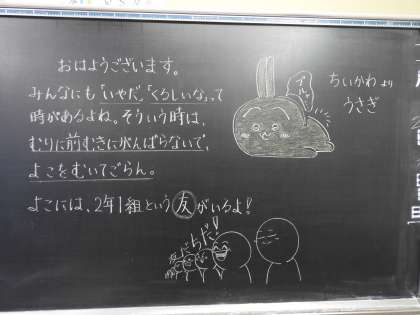 おはようございます。
みんなにも「いやだ」「くるしいな」って
時があるよね。そういう時は、
むりに前むきにがんばらないで、
よこをむいてごらん。
よこには、2年1組という友がいるよ!
ちいかわより
うさぎ